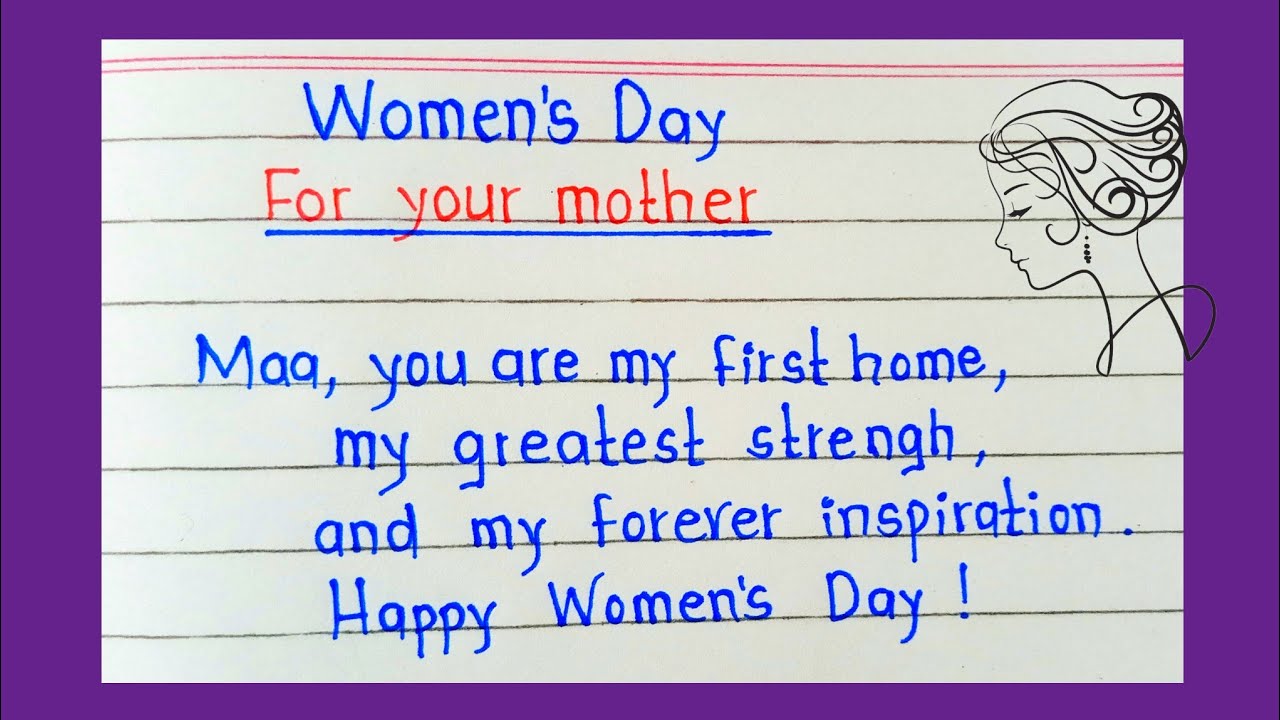 Women's Day
For your mother
Maa, you are my first home,
my greatest strengh,
and my forever inspiration.
Happy Women's Day !